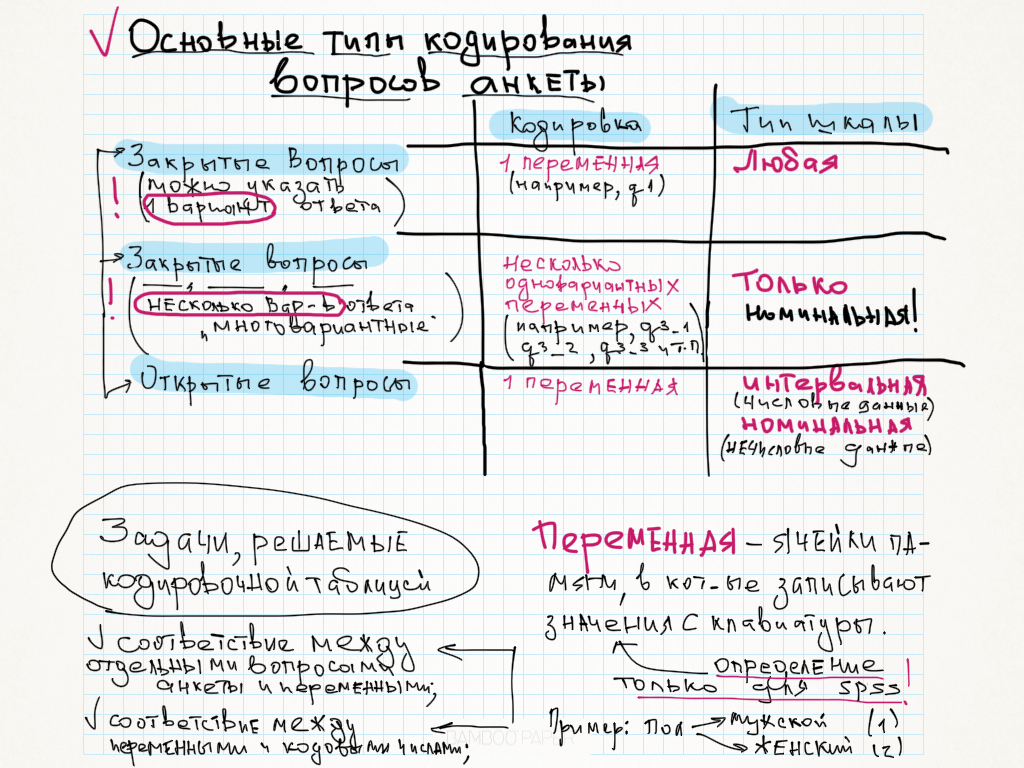 ✓ Основные типы кодирования
вопросов анкеты
Кодировка
Тип шкалы
Закрытые вопросы
(можно указать
! 1 вариант ответа)
1 переменная
(например, q1)
Любая
Закрытые вопросы
! (несколько вар-в ответа
„многовариантные")
несколько
одновариантных
переменных
(например, q3_1
q3_2, q3_3 и т.п)
только
номинальная!
Открытые вопросы
1 переменная
интервальная
(числовые данные)
номинальная
(нечисловые данные)
Задачи, решаемые
кодировочной таблицей
√ соответствие между
отдельными вопросами
анкеты и переменными;
√ соответствие между
переменными и кодовыми числами;
Переменная – ячейки па-
мяти, в кот-ые записывают
значения с клавиатуры.
определение
только для spss!
Пример: Пол → мужской (1)
→ женский (2)